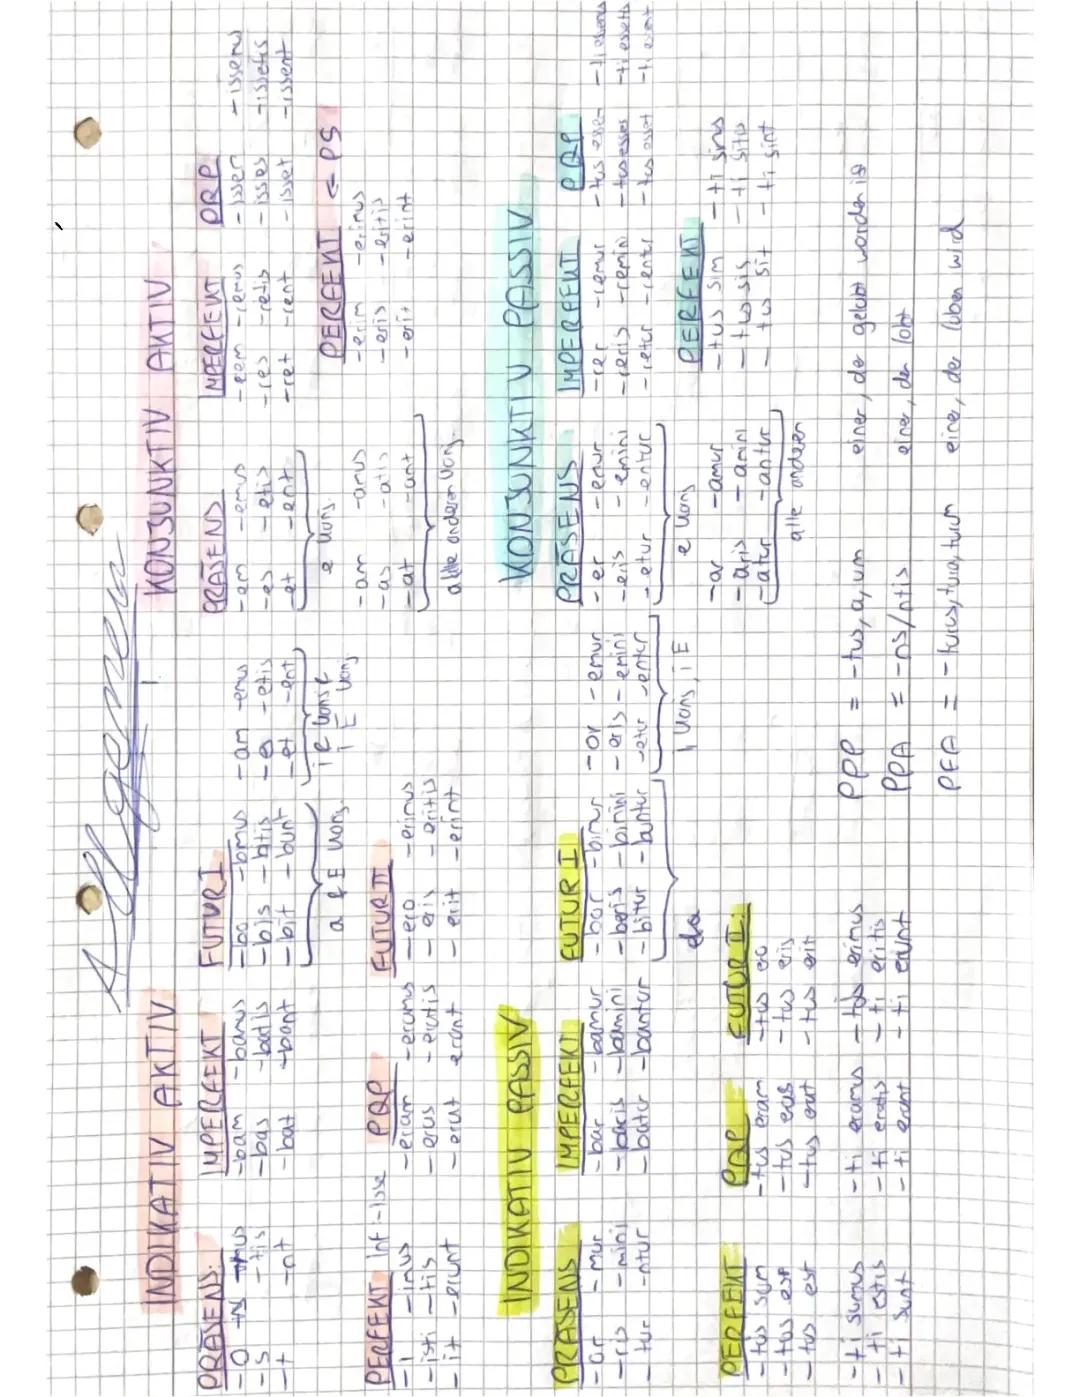 Allgemein
INDIKATIV AKTIV
PRÄSENS:
-O -mus
-s -tis
-t -nt
IMPERFEKT
-bam -bamus
-bas -batis
-bat -bant
FUTUR I
-bo -bmus
-bis -btis
-bit -bunt
a & E Konj.
-am -emus
-es -etis
-et -ent
PERFEKT Inf: -isse
-i -imus
-isti -tis
-it -erunt
PQP
-eram -eramus
-eras -eratis
-erat erant
FUTUR II
-ero -erimus
-eris -eritis
-erit -erint
KONJUNKTIV AKTIV
PRÄSENS
-em -emus
-es -etis
-et -ent
e Konj.
-am -amus
-as -atis
-at -ant
alle anderen Konj
IMPERFEKT
-rem -remus
-res -retis
-ret -rent
PQP
-issem -issemus
-isses -issetis
-isset -issent
PERFEKT ← PS
-erim -erimus
-eris -eritis
-erit -erint
INDIKATIV PASSIV
PRÄSENS
-or -mur
-ris -mini
-tur -ntur
IMPERFEKT
-bar -bamur
-baris -bamini
-batur -bantur
FUTUR I
-bor -bimur
-beris -bimini
-bitur -buntur
-or -emur
-eris -emini
-etur -entur
i Konj, i E
PERFEKT
-tus sum
-tus est
-tus est
-ti sumus
-ti estis
-ti sunt
PQP
-tus eram
-tus eras
-tus erat
-ti eramus
-ti eratis
-ti erant
FUTUR II:
-tus ero
-tus eris
-tus erit
-tus erimus
-ti eritis
-ti erunt
KONJUNKTIV PASSIV
PRÄSENS
-er -emur
-eris -emini
-etur -entur
e Konj
-ar -amur
-aris -amini
-atur -antur
alle anderen
IMPERFEKT
-rer -remur
-reris -remini
-retur -rentur
PQP
-tus essem -ti essemus
-tus esses -ti essetis
-tus esset -ti essent
PERFEKT
-tus sim -ti simus
-tus sis -ti sitis
-tus sit -ti sint
PPP = -tus, a, um einer, der gelobt worden ist
PPA = -ns/ntis einer, der lobt
PFA = -turus, tura, turum einer, der loben wird